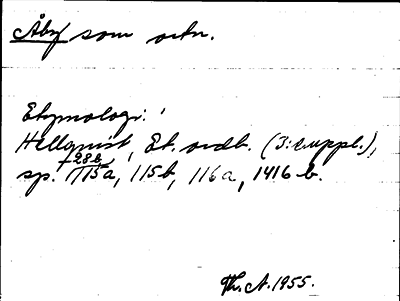 Åby som ortn.
Etymologi:
Hellquist, Et. ordb. (3:e uppl.),
28b,
sp. 115a, 115b, 116a, 1416 b.
Th. A. 1955.